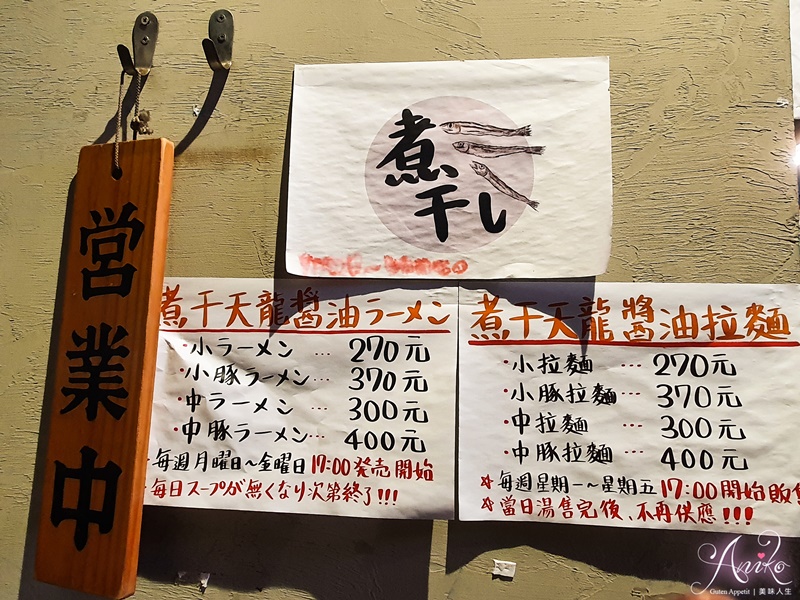 営業中
煮干し
煮干天龍醬油ラーメン
・小ラーメン … 270元
・小豚ラーメン … 370元
・中ラーメン … 300元
・中豚ラーメン … 400元
毎週月曜日～金曜日17:00発売開始
毎日スープが無くなり次第終了!!!
煮干天龍醬油拉麵
・小拉麵 … 270元
・小豚拉麵 … 370元
・中拉麵 … 300元
・中豚拉麵 … 400元
☆每週星期一～星期五17:00開始販售
☆當日湯售完後、不再供應!!!
Aniko
Guten Appetit | 美味人生